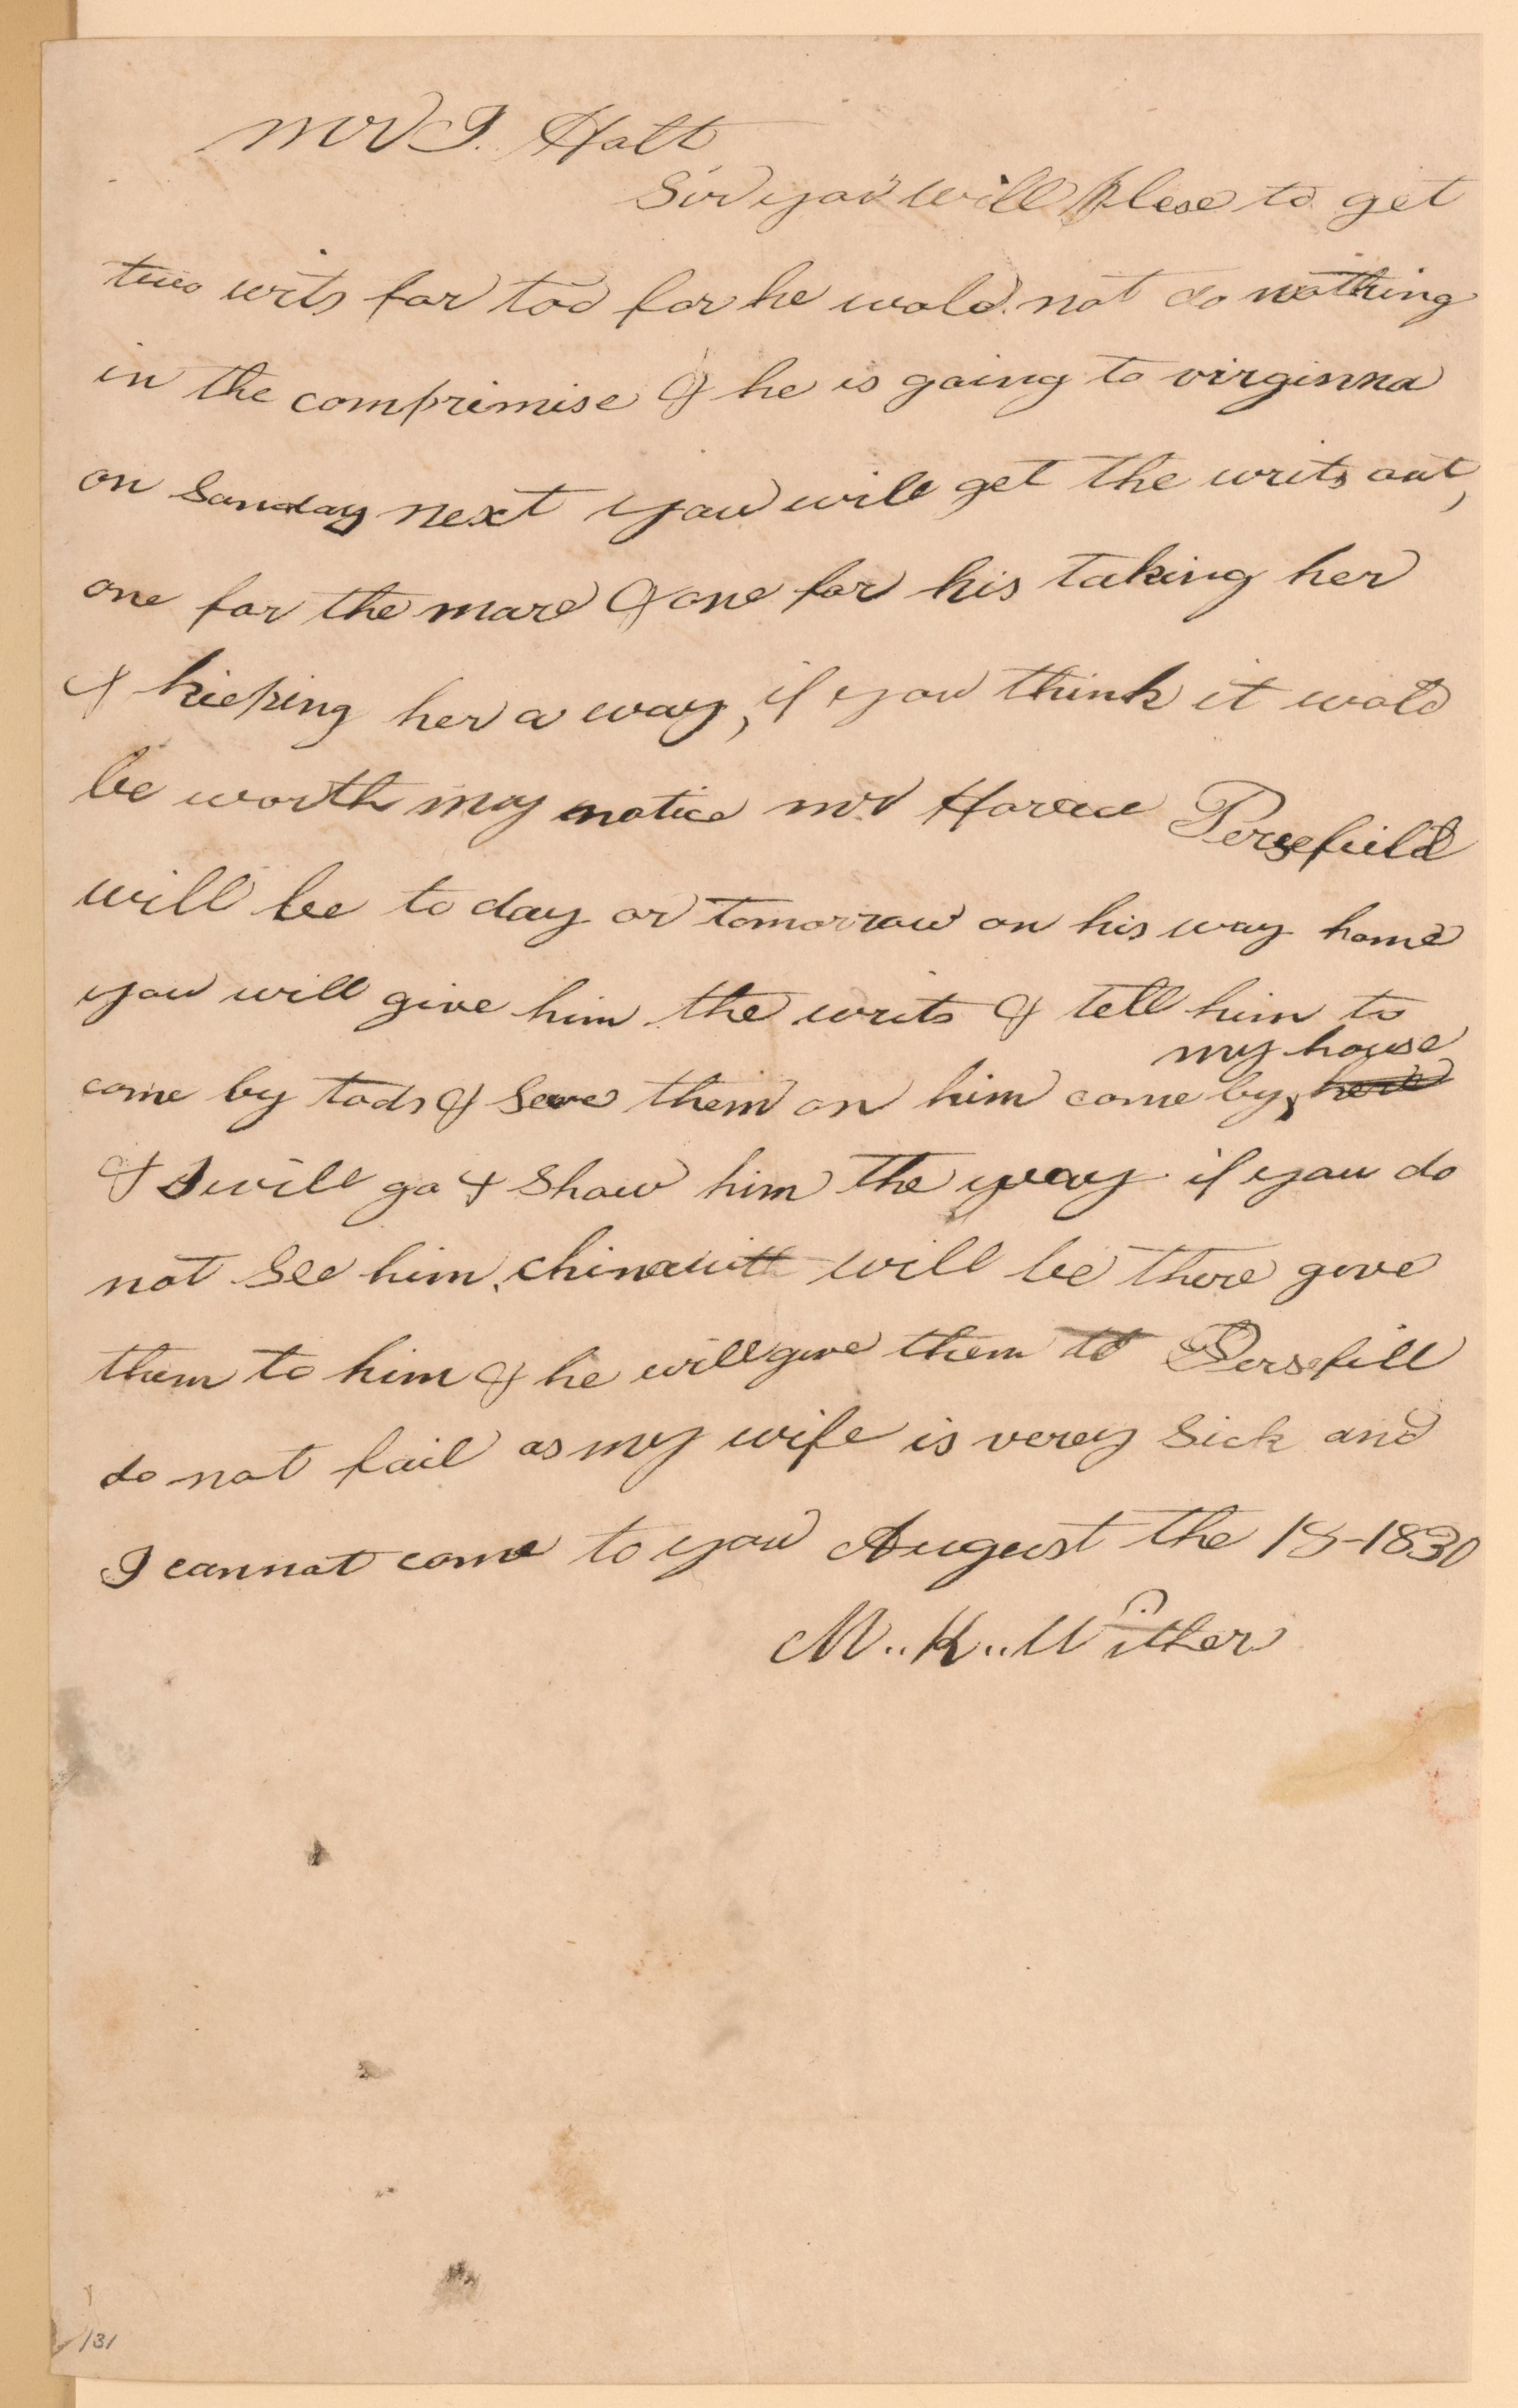 Mr J. Holt
Sir you will plese to get
two wrts for tod for he wold not do nothing
in the comprimise & he is going to virginna
on Sonday next you will get the writs out,
one for the mare & one for his taking her
& kieping her a way, if you think it wold
be worth my notice mr Horace Persefield
will be to day or tomorrow on his way home
you will give him the writs & tell him to
my house
come by tods & serve them on him come by here
& I will go & Show him the way if you do
not See him. will be there give
them to him & he will give them to Persefill
do not fail as my wife is verey Sick and
I cannot come to you August the 18-1830
M..K..Wither
131